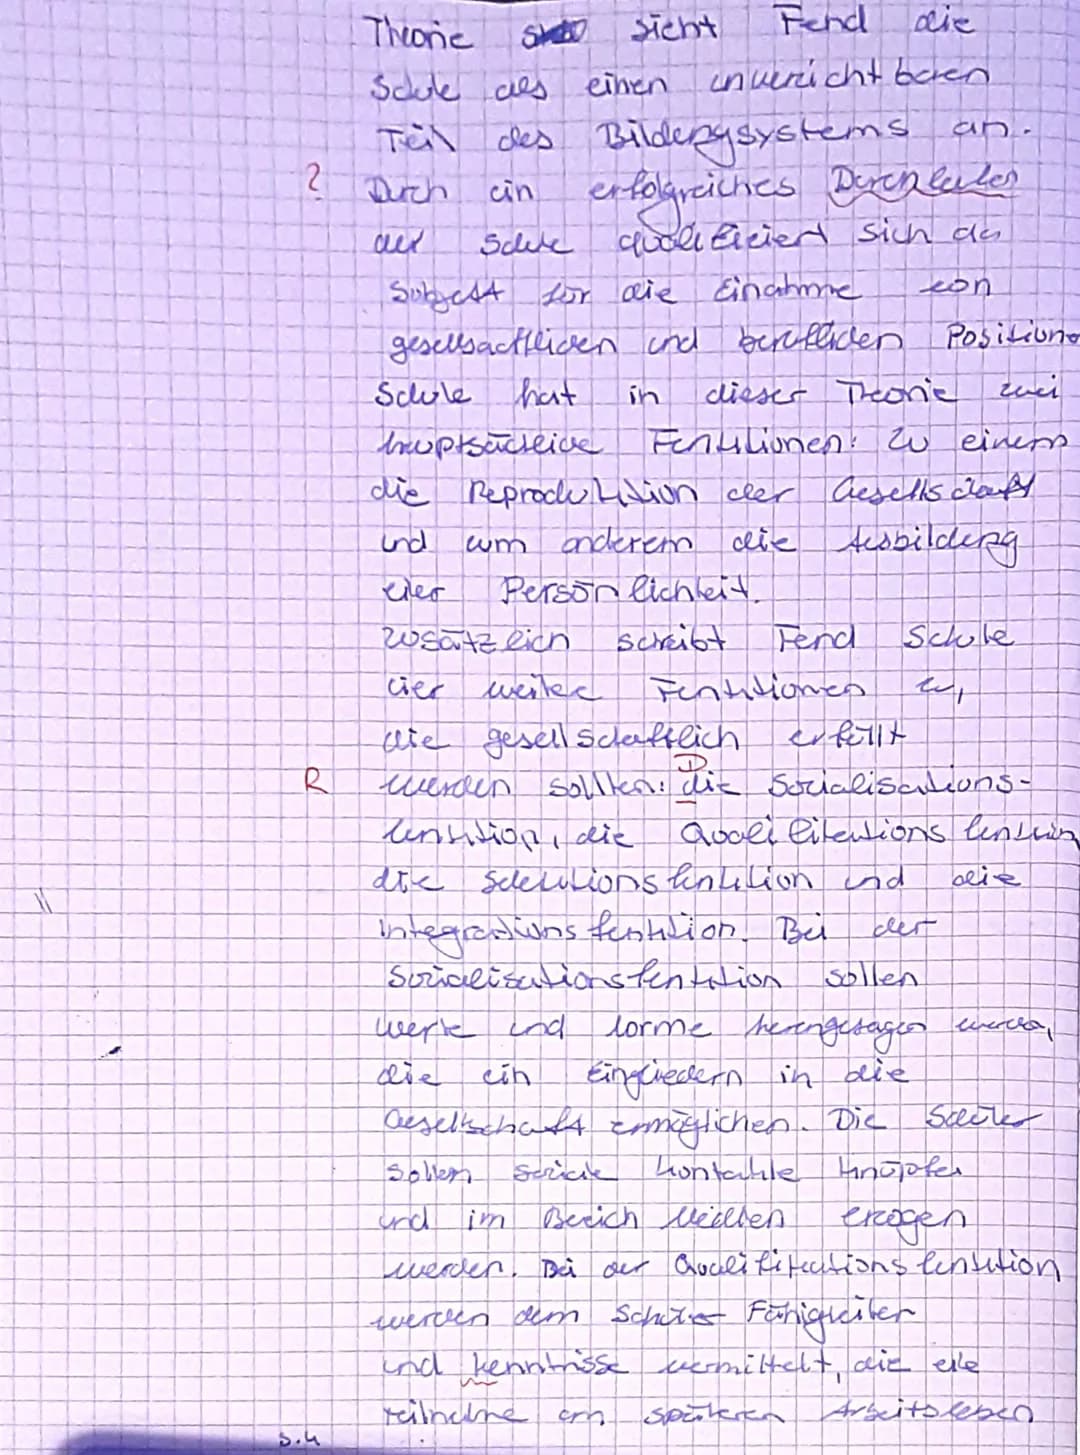 Theorie sieht Fend die
Schule als einen unverzichtbaren
Teil des Bildungssystems an.
? Durch ein erfolgreiches Durchlaufen
der Schule qualifiziert sich das
Subjekt für die Einahme von
gesellsaftlichen und beruflichen Positione
Schule hat in dieser Theorie zwei
hauptsächliche Funktionen: Zu einem
die Reproduktion der Gesellschaft
und zum anderem die Ausbildung
der Persönlichkeit.
Zusätzlich schreibt Fend Schule
vier weitere Funktionen zu,
die gesellschaftlich erfüllt
R werden sollten: die D Sozialisations-
funktion, die Qualifikationsfunktion
die Selektionsfunktion und die
Integrationsfunktion. Bei der
Sozialisationsfunktion sollen
Werte und Norme werden,
die ein Eingliedern in die
Gesellschaft ermöglichen. Die Schüler
sollen soziale Kontakte knüpfen
und im Bereich Medien erzogen
werden. Bei der Qualifikationsfunktion
werden dem Schüler Fähigkeiten
und kenntnisse vermittelt, die eine
teilnahme am späteren Arbeitsleben
S.4